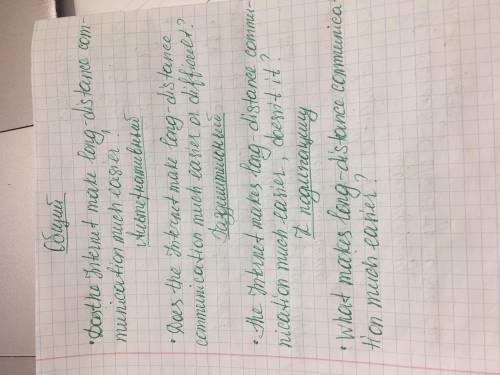 Общий
• Does the Internet make long-distance com-
munication much easier.
Альтернативный
• Does the Internet make long-distance
communication much easier or difficult?
Разделительный
• The Internet makes long-distance commu-
nication much easier, doesn't it?
К подлежащему
• What makes long-distance communica-
tion much easier?